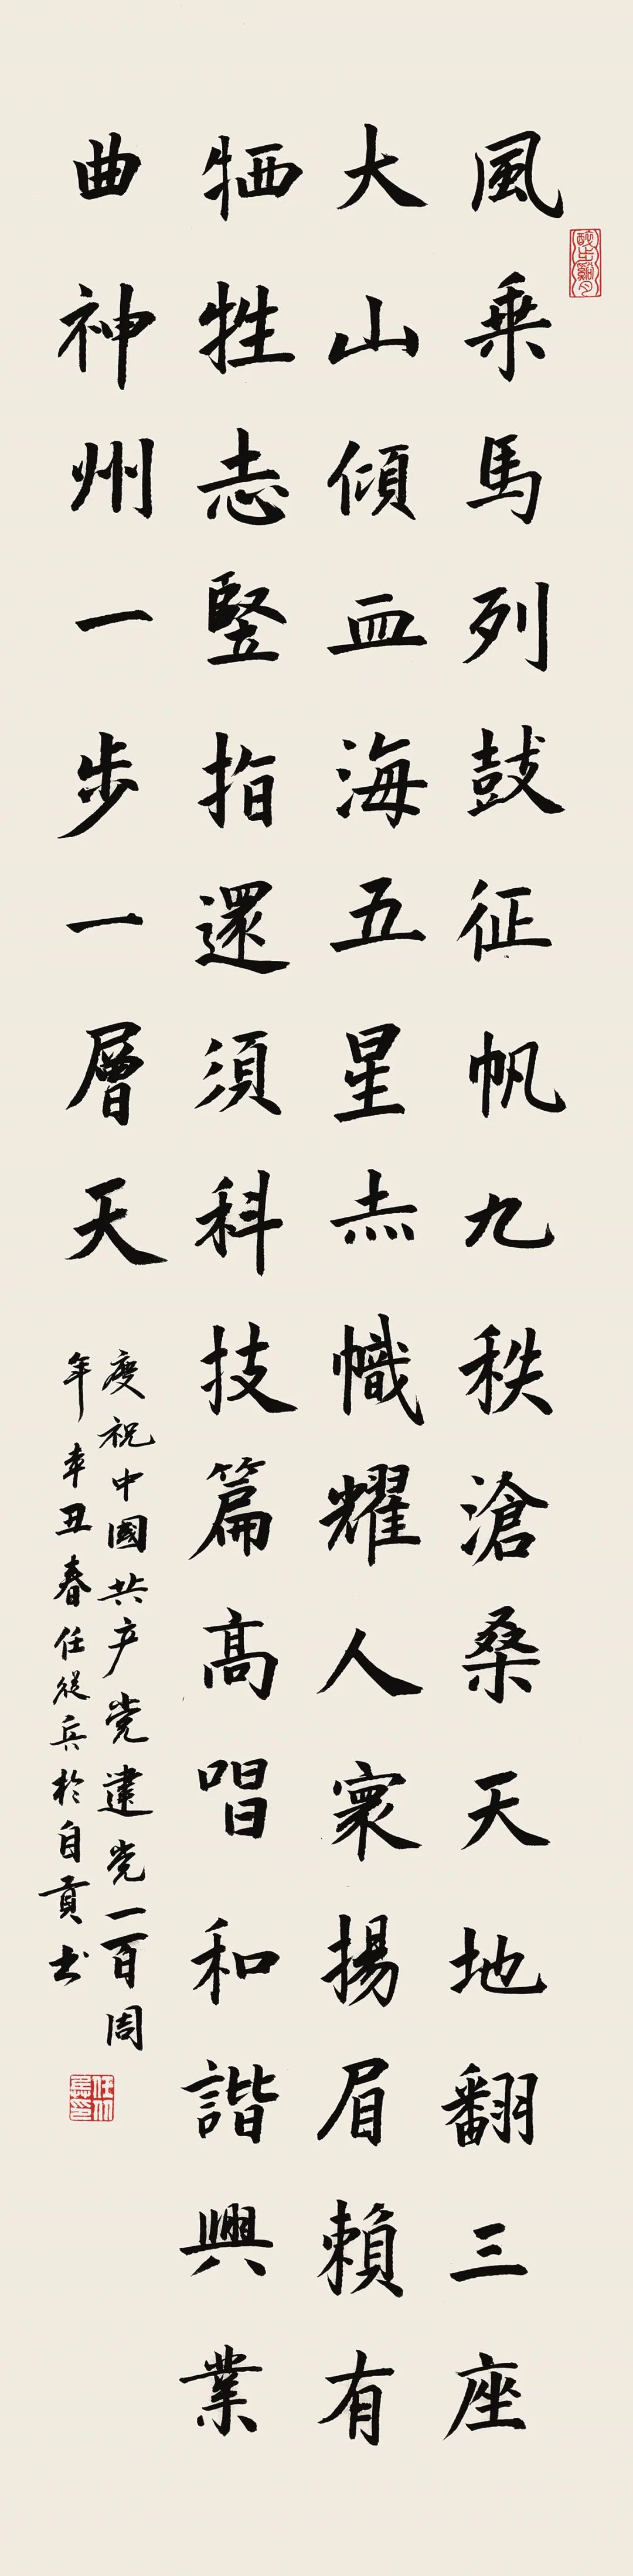 風乘馬列鼓征帆九秩滄桑天地翻三座
大山傾血海五星赤幟耀人寰揚眉賴有
犧牲志竪指還須科技篇高唱和諧興業
曲神州一步一層天
慶祝中國共产党建党一百周
年辛丑春任從兵於自貢书